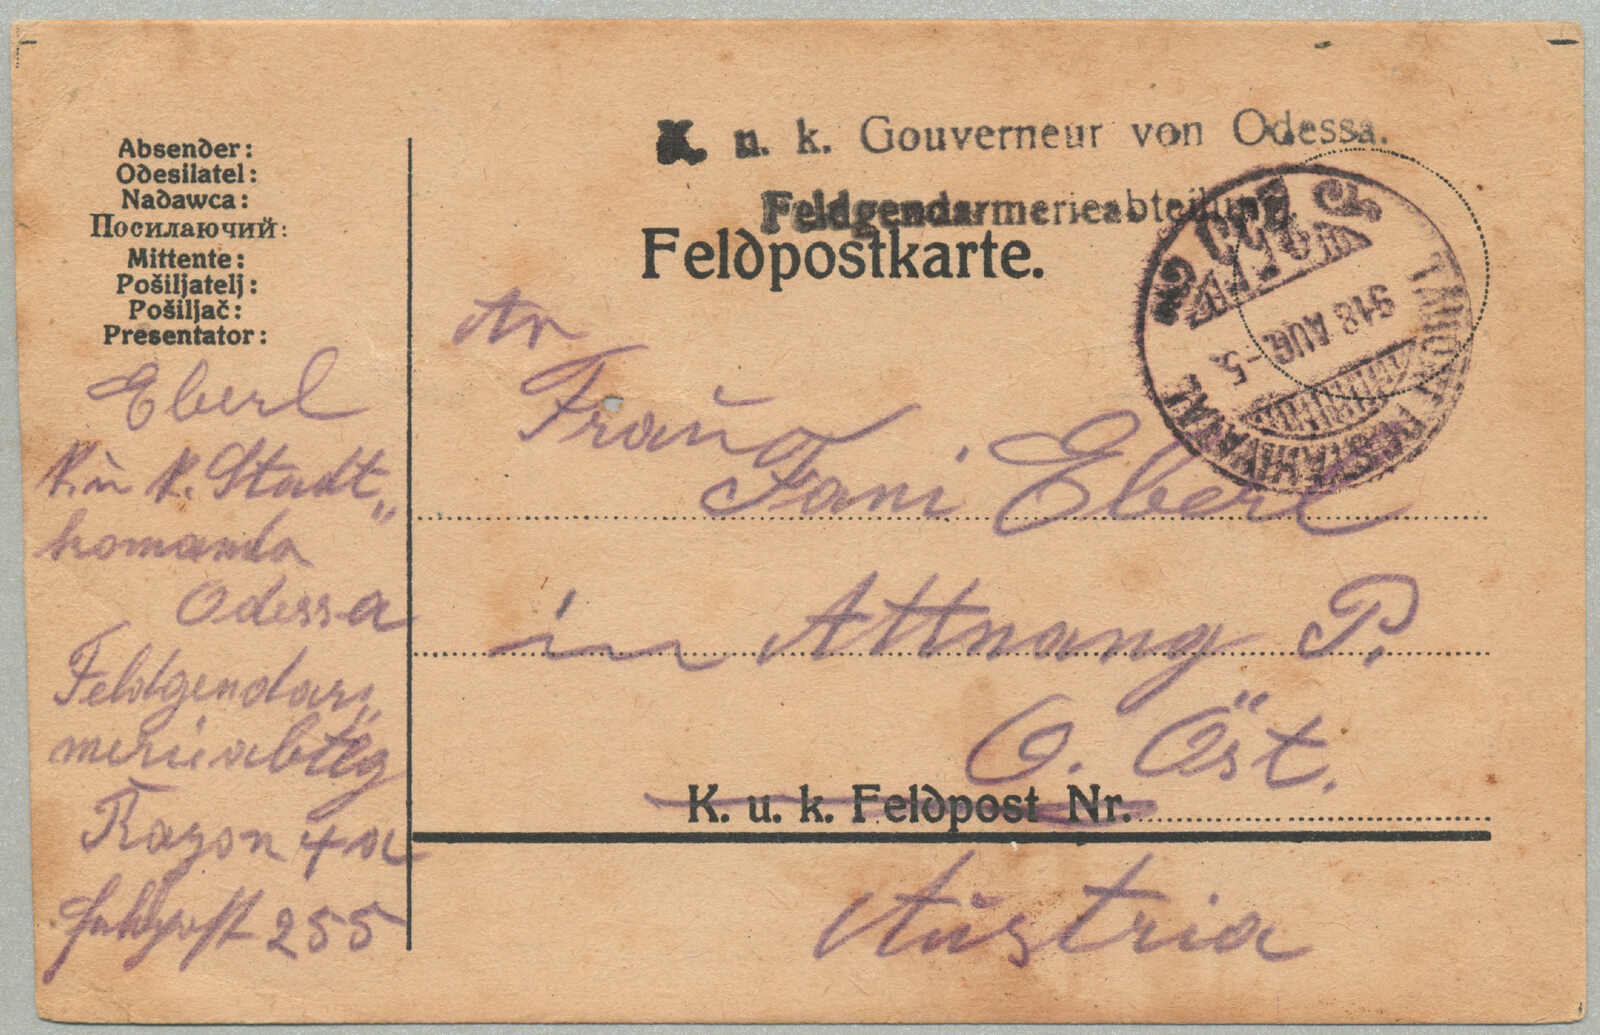 K. u. k. Gouverneur von Odessa.
Feldgendarmerieabteilung
Feldpostkarte.
Absender:
Odesilatel:
Nadawca:
Посилаючий:
Mittente:
Pošiljatelj:
Pošiljač:
Presentator:
Eberl
K. u. K. Stadt„
komando
Odessa
Feldgendar„
merieabtlg
Rayon 4a
Feldpost 255
TÁBORI POSTAHIVATAL
255
918 AUG. -5.
An
Frau
Fani Eberl
in Attnang P.
O. Öst.
K. u. k. Feldpost Nr.
Austria